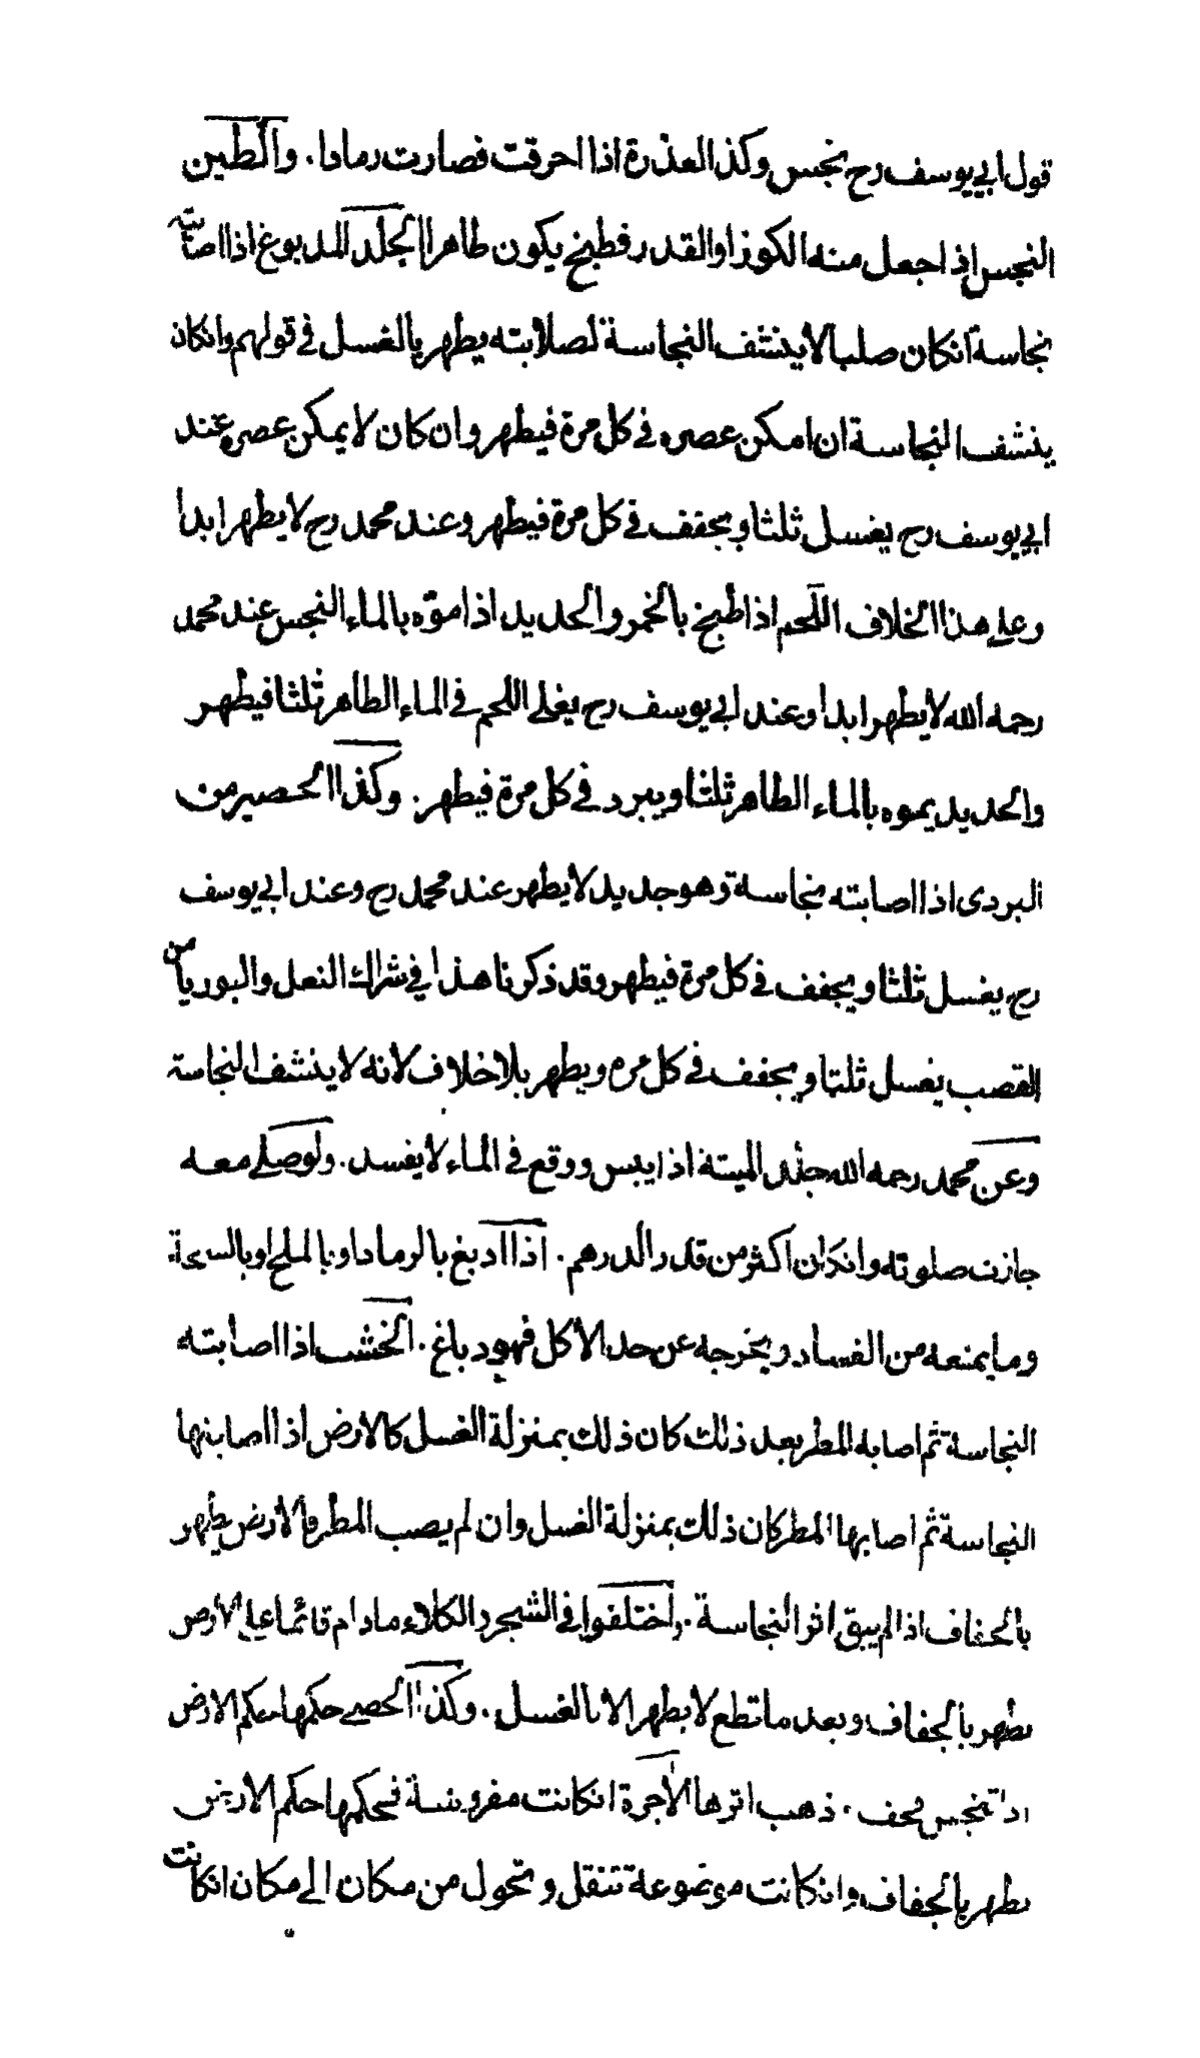 قول ابي يوسف رح نجس وكذا العذرة اذا احرقت فصارت رمادا . والطين
النجس اذا جعل منه الكوز او القدر فطبخ يكون طاهرا الجلد المدبوغ اذا اصابته
نجاسة انكان صلبا لا ينشف النجاسة لصلابته يطهر بالغسل في قولهم وانكان
ينشف النجاسة ان امكن عصره في كل مرة فيطهر وان كان لا يمكن عصره عند
ابي يوسف رح يغسل ثلثا ويجفف في كل مرة فيطهر وعند محمد رح لا يطهر ابدا
وعلي هذا الخلاف اللحم اذا طبخ بالخمر والحديد اذا موّه بالماء النجس عند محمد
رحمه الله لا يطهر ابدا وعند ابي يوسف رح يغلي اللحم في الماء الطاهر ثلثا فيطهر
والحديد يموه بالماء الطاهر ثلثا ويبرد في كل مرة فيطهر . وكذا الحصير من
البردى اذا اصابته نجاسة وهو جديد لا يطهر عند محمد رح وعند ابي يوسف
رح يغسل ثلثا ويجفف في كل مرة فيطهر وقد ذكرنا هذا في شراك النعل والبوريا من
القصب يغسل ثلثا ويجفف في كل مره ويطهر بلا خلاف لانه لا ينشف النجاسة
وعن محمد رحمه الله جلد الميتة اذا يبس ووقع في الماء لا يفسد . ولو صلي معه
جازت صلوته وانكان اكثر من قدر الدرهم . اذا ادبغ بالرماد او بالملح او بالسبخة
وما يمنعه من الفساد ويخرجه عن حد الاكل فهو دباغ . الخشب اذا اصابته
النجاسة ثم اصابه المطر بعد ذلك كان ذلك بمنزلة الغسل كالارض اذا اصابتها
النجاسة ثم اصابها المطر كان ذلك بمنزلة الغسل وان لم يصب المطر فالارض يطهر
بالجفاف اذا لم يبق اثر النجاسة . واختلفوا في الشجر والكلاء ما دام قائما علي الارض
يطهر بالجفاف وبعد ما قطع لا يطهر الا بالغسل . وكذا الحصي حكمها حكم الارض
اذا تنجس فجف . ذهب اثرها الاجرة انكانت مفروشة فحكمها حكم الارض
يطهر بالجفاف وانكانت موضوعة تنقل وتحول من مكان الي مكان انكانت